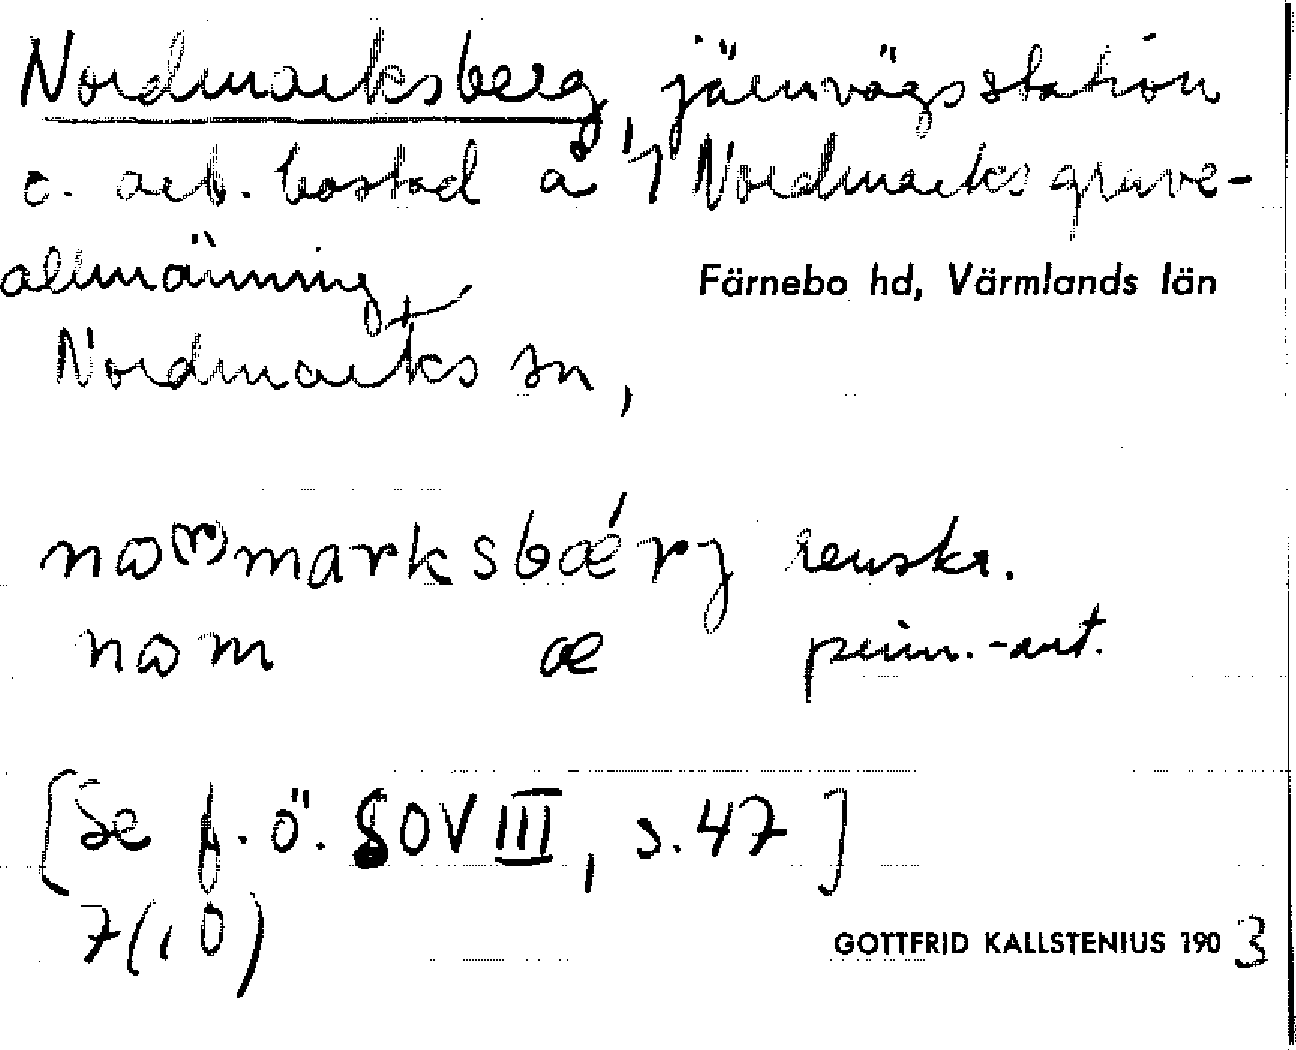 Nordmarksberg, järnvägsstation
o. arb. bostad å 1/1 Nordmarks gruve-
allmänning
Färnebo hd, Värmlands län
Nordmarks sn,
nɷ(r)marksbǽrj renskr.
nɷm æ prim.-ant.
[Se f. ö. SOV III, s. 47]
7(, 0)
GOTTFRID KALLSTENIUS 1903